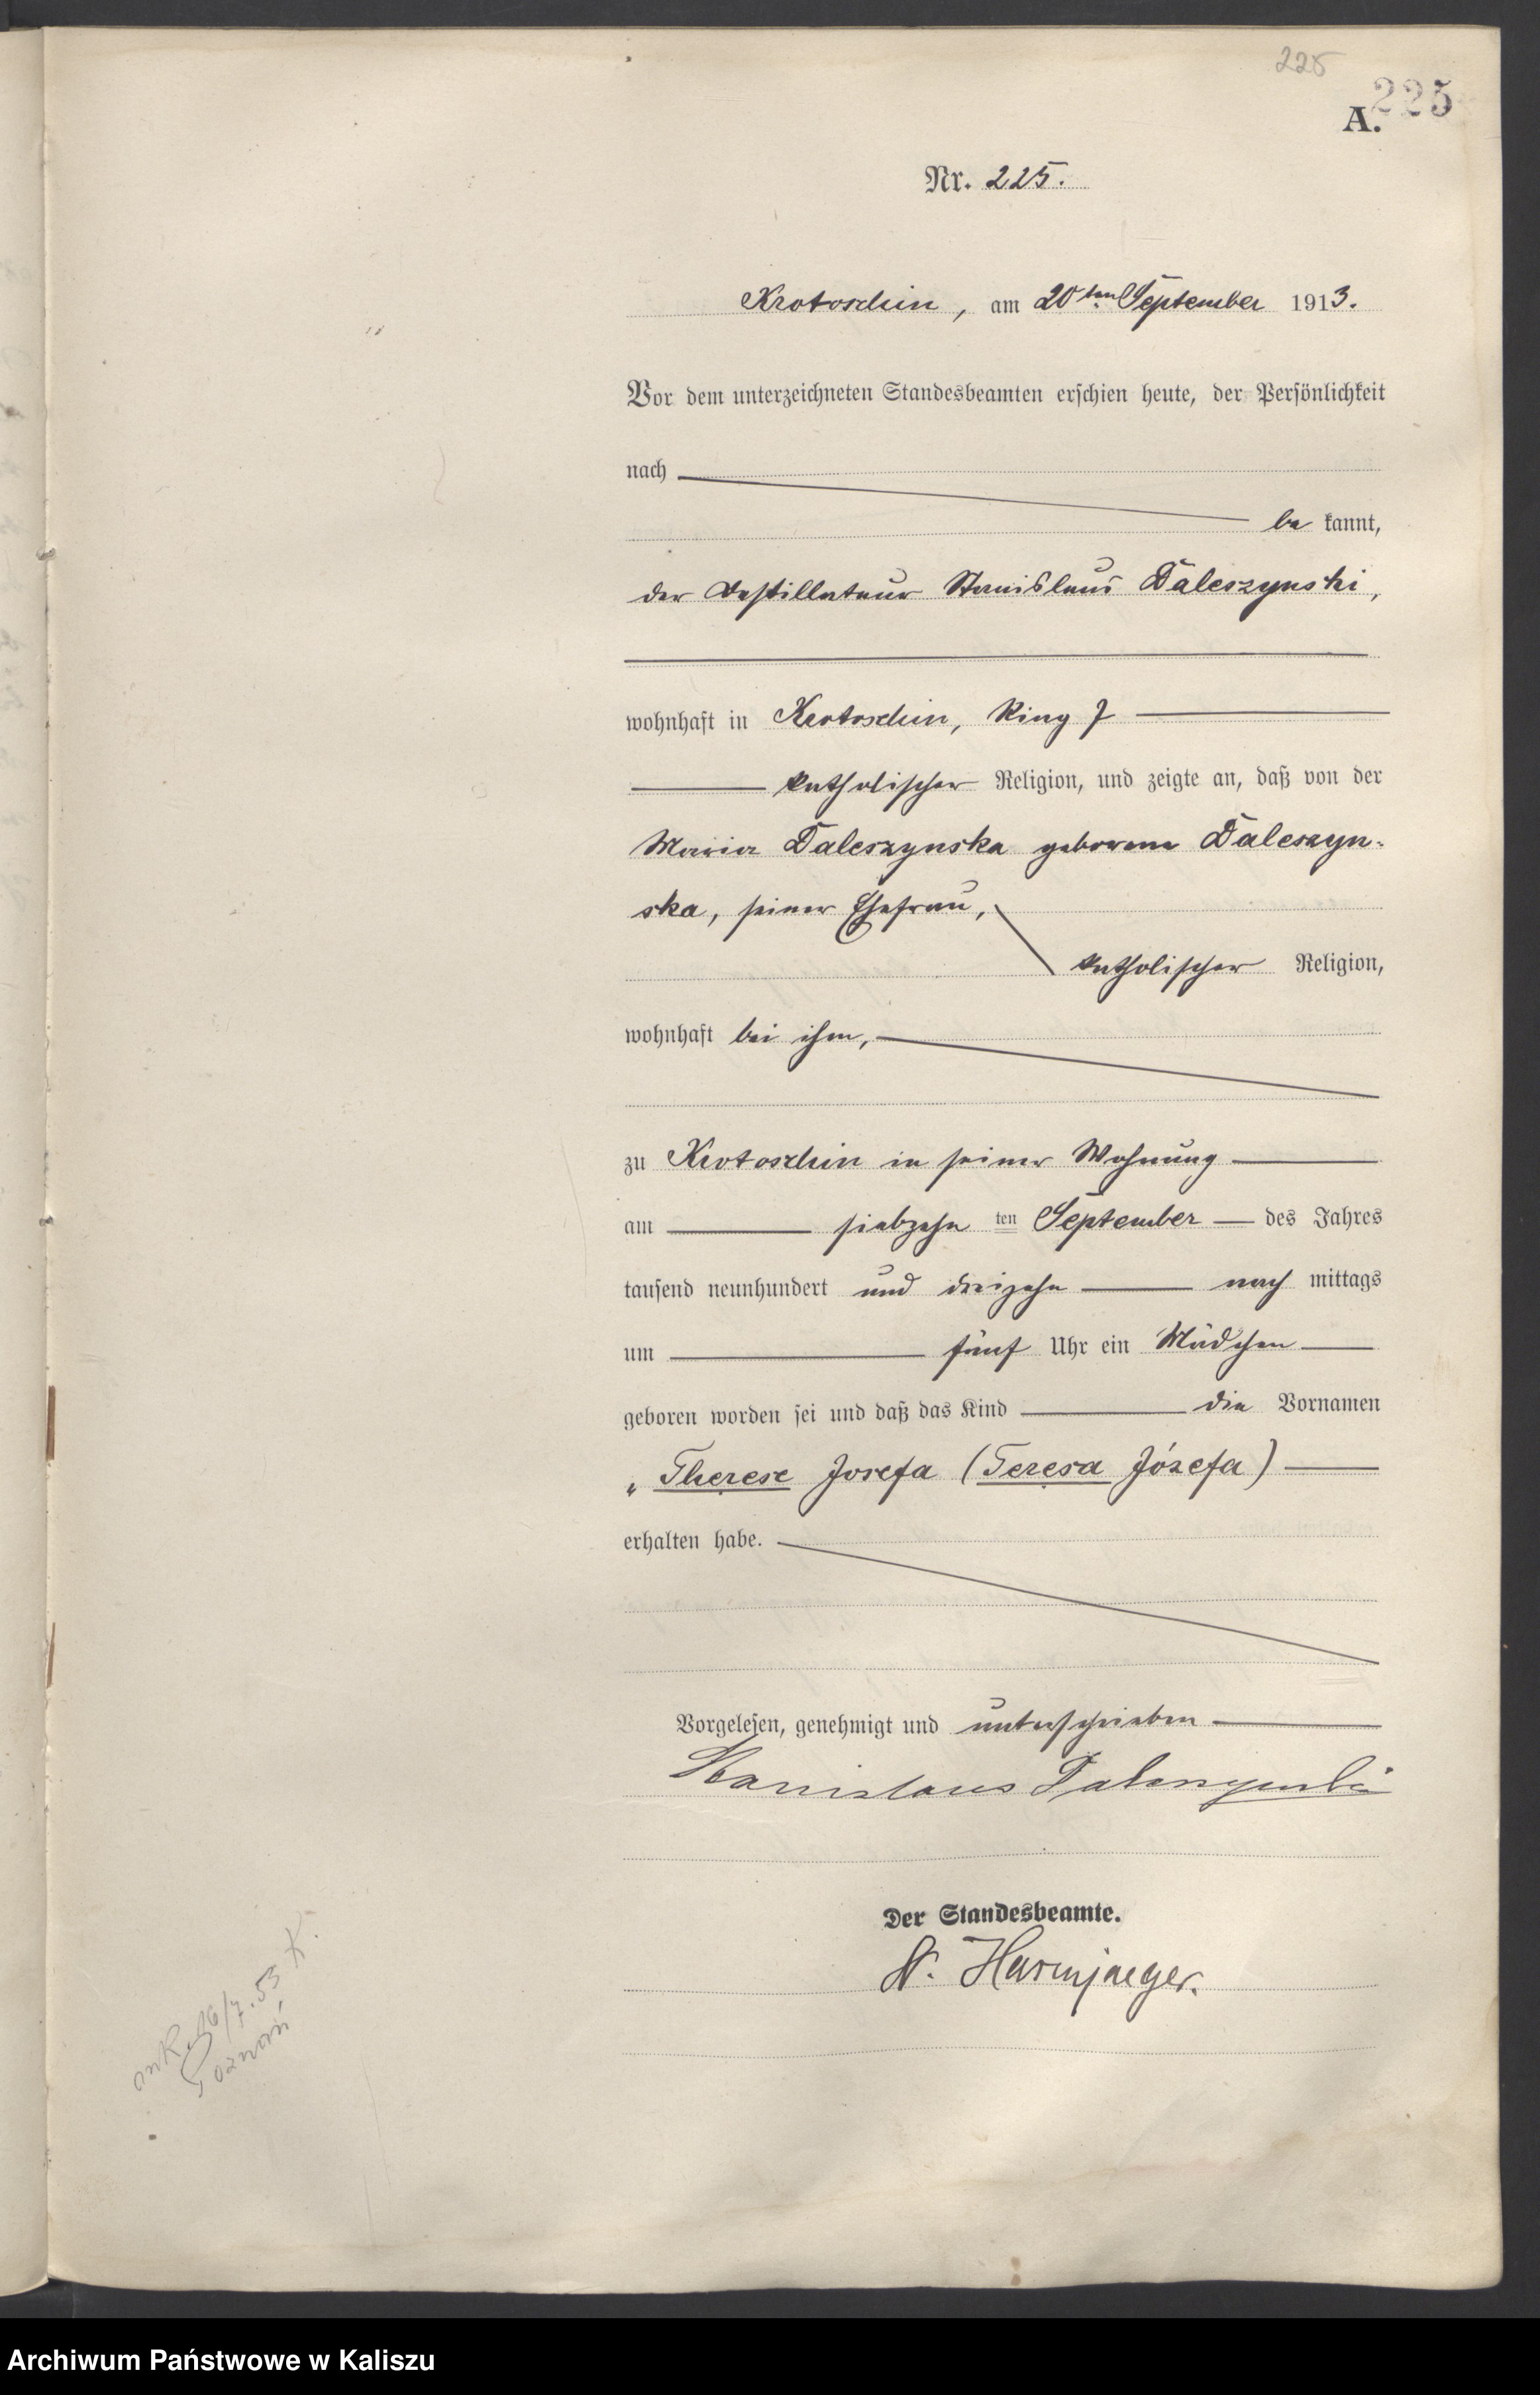 225
A. 225
Nr. 225.
Krotoschin, am 20ten September 1913.
Vor dem unterzeichneten Standesbeamten erschien heute, der Persönlichkeit
nach
be kannt,
der Destillateur Stanislaus Daleszynski,
wohnhaft in Krotoschin, Ring 7
katholischer Religion, und zeigte an, daß von der
Maria Daleszynska geborene Daleszyn-
ska, seiner Ehefrau,
katholischer Religion,
wohnhaft bei ihm,
zu Krotoschin in seiner Wohnung
am siebzehn ten September des Jahres
tausend neunhundert und dreizehn nach mittags
um fünf Uhr ein Mädchen
geboren worden sei und daß das Kind die Vornamen
„Therese Josefa (Teresa Józefa)
erhalten habe.
Vorgelesen, genehmigt und unterschrieben
Stanislaus Daleszynski
Der Standesbeamte.
Harmjaeger.
16/7.53 K.
Poznań
Archiwum Państwowe w Kaliszu